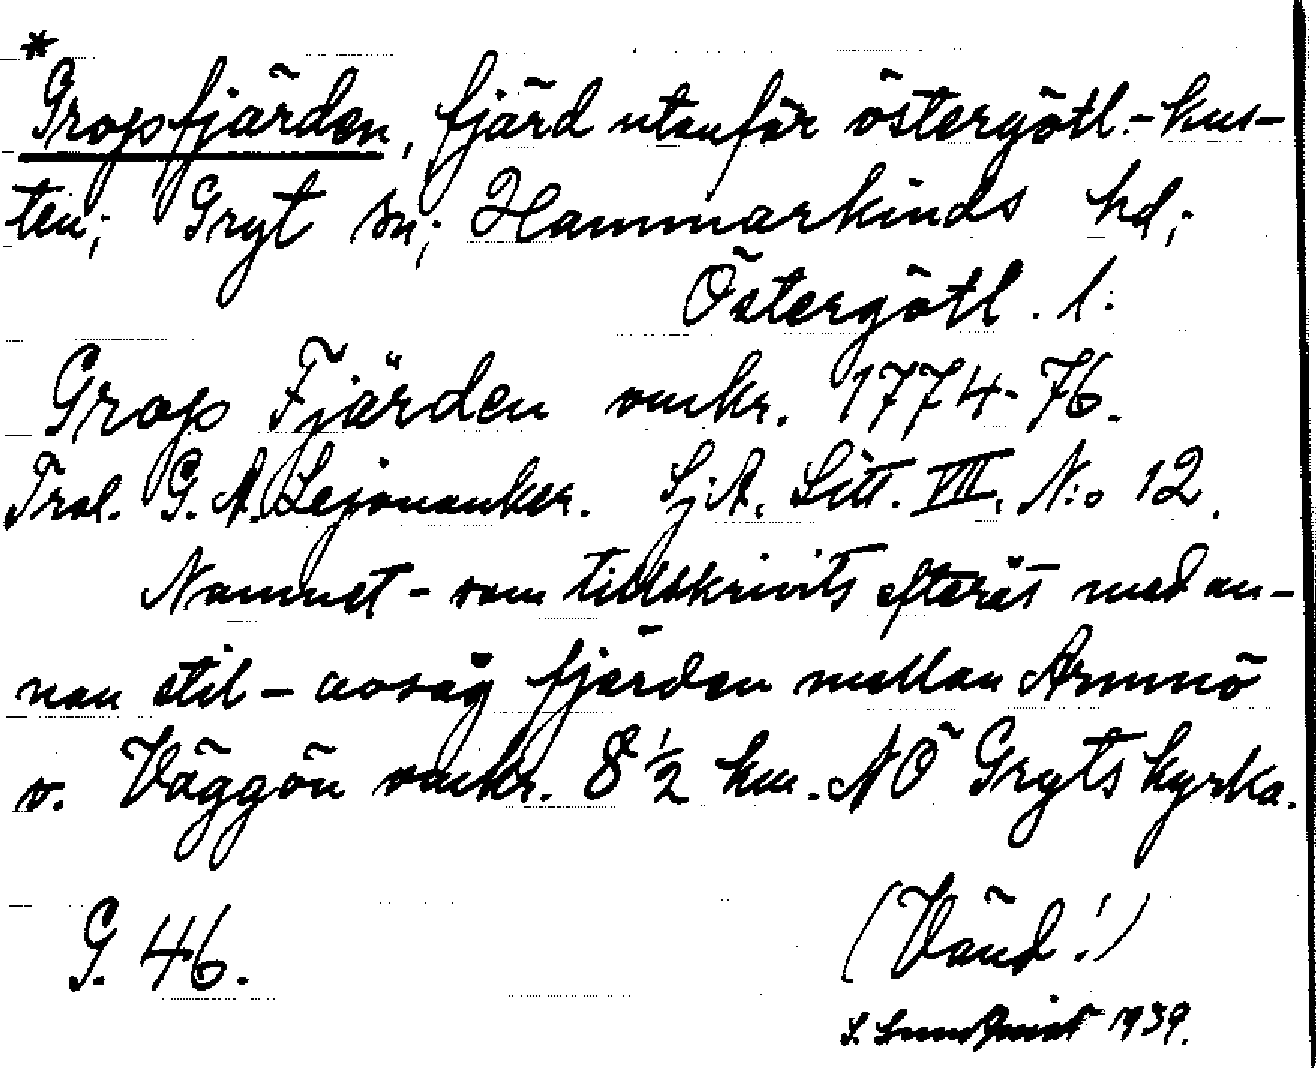 *
Gropfjärden, fjärd utanför östergötl.-kus-
ten; Gryt sn; Hammarkinds hd;
Östergötl. l:
Grop Fjärden omkr. 1774-76.
Tral. G. A. Lejonanker. SjA. Litt. VII, N:o 12.
Namnet - som tillskrivits efteråt med an-
nan stil - avsåg fjärden mellan Armnö
o. Väggön omkr. 8 1/2 km. NÖ Gryts kyrka.
G. 46.
(Vänd!)
S. Lundqvist 1939.